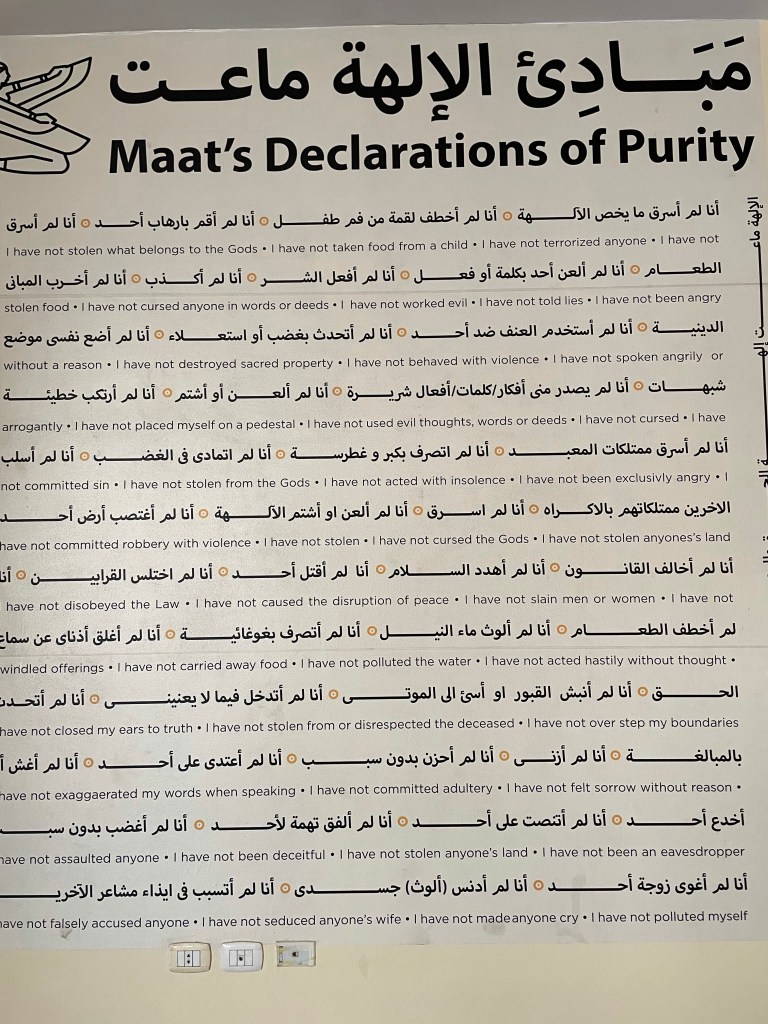 مَبَادِئ الإلهة ماعت
Maat's Declarations of Purity
أنا لم أسرق ما يخص الآلهة ⊙ أنا لم أخطف لقمة من فم طفل ⊙ أنا لم أقم بارهاب أحد ⊙ أنا لم أسرق
I have not stolen what belongs to the Gods • I have not taken food from a child • I have not terrorized anyone • I have not
الطعام ⊙ أنا لم ألعن أحد بكلمة أو فعل ⊙ أنا لم أفعل الشر ⊙ أنا لم أكذب ⊙ أنا لم أخرب المبانى
stolen food • I have not cursed anyone in words or deeds • I have not worked evil • I have not told lies • I have not been angry
الدينية ⊙ أنا لم أستخدم العنف ضد أحد ⊙ أنا لم أتحدث بغضب أو استعلاء ⊙ أنا لم أضع نفسى موضع
without a reason • I have not destroyed sacred property • I have not behaved with violence • I have not spoken angrily or
شبهات ⊙ أنا لم يصدر منى أفكار/كلمات/أفعال شريرة ⊙ أنا لم ألعن أو أشتم ⊙ أنا لم أرتكب خطيئة
arrogantly • I have not placed myself on a pedestal • I have not used evil thoughts, words or deeds • I have not cursed • I have
أنا لم أسرق ممتلكات المعبد ⊙ أنا لم اتصرف بكبر و غطرسة ⊙ أنا لم اتمادى فى الغضب ⊙ أنا لم أسلب
not committed sin • I have not stolen from the Gods • I have not acted with insolence • I have not been exclusivly angry • I
الاخرين ممتلكاتهم بالاكراه ⊙ أنا لم اسرق ⊙ أنا لم ألعن او أشتم الآلهة ⊙ أنا لم أغتصب أرض أحد
have not committed robbery with violence • I have not stolen • I have not cursed the Gods • I have not stolen anyones's land
أنا لم أخالف القانون ⊙ أنا لم أهدد السلام ⊙ أنا لم أقتل أحد ⊙ أنا لم اختلس القرابين ⊙ أنا
I have not disobeyed the Law • I have not caused the disruption of peace • I have not slain men or women • I have not
لم أخطف الطعام ⊙ أنا لم ألوث ماء النيل ⊙ أنا لم أتصرف بغوغائية ⊙ أنا لم أغلق أذناى عن سماع
windled offerings • I have not carried away food • I have not polluted the water • I have not acted hastily without thought •
الحق ⊙ أنا لم أنبش القبور او أسئ الى الموتى ⊙ أنا لم أتدخل فيما لا يعنينى ⊙ أنا لم أتحدث
have not closed my ears to truth • I have not stolen from or disrespected the deceased • I have not over step my boundaries
بالمبالغة ⊙ أنا لم أزنى ⊙ أنا لم أحزن بدون سبب ⊙ أنا لم أعتدى على أحد ⊙ أنا لم أغش أ
have not exaggaerated my words when speaking • I have not committed adultery • I have not felt sorrow without reason •
أخدع أحد ⊙ أنا لم أتنصت على أحد ⊙ أنا لم ألفق تهمة لأحد ⊙ أنا لم أغضب بدون سبب
have not assaulted anyone • I have not been deceitful • I have not stolen anyone's land • I have not been an eavesdropper
أنا لم أغوى زوجة أحد ⊙ أنا لم أدنس (ألوث) جسدى ⊙ أنا لم أتسبب فى ايذاء مشاعر الآخري
have not falsely accused anyone • I have not seduced anyone's wife • I have not made anyone cry • I have not polluted myself
الإلهة ماعت